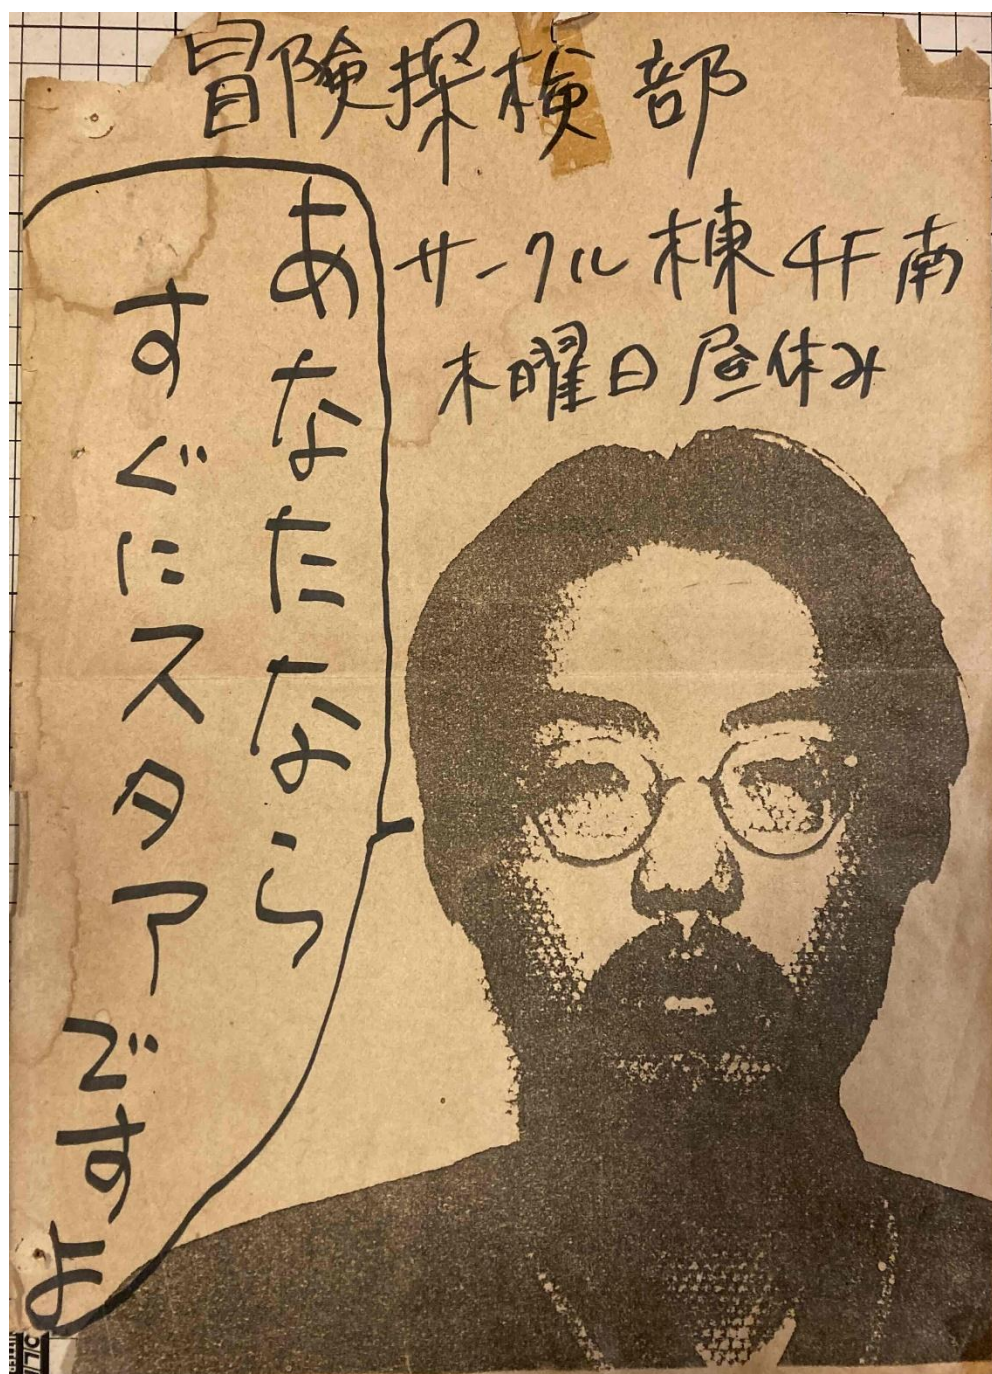 冒険探検部
サークル棟4F南
木曜日昼休み
あなたなら
すぐにスタアですよ